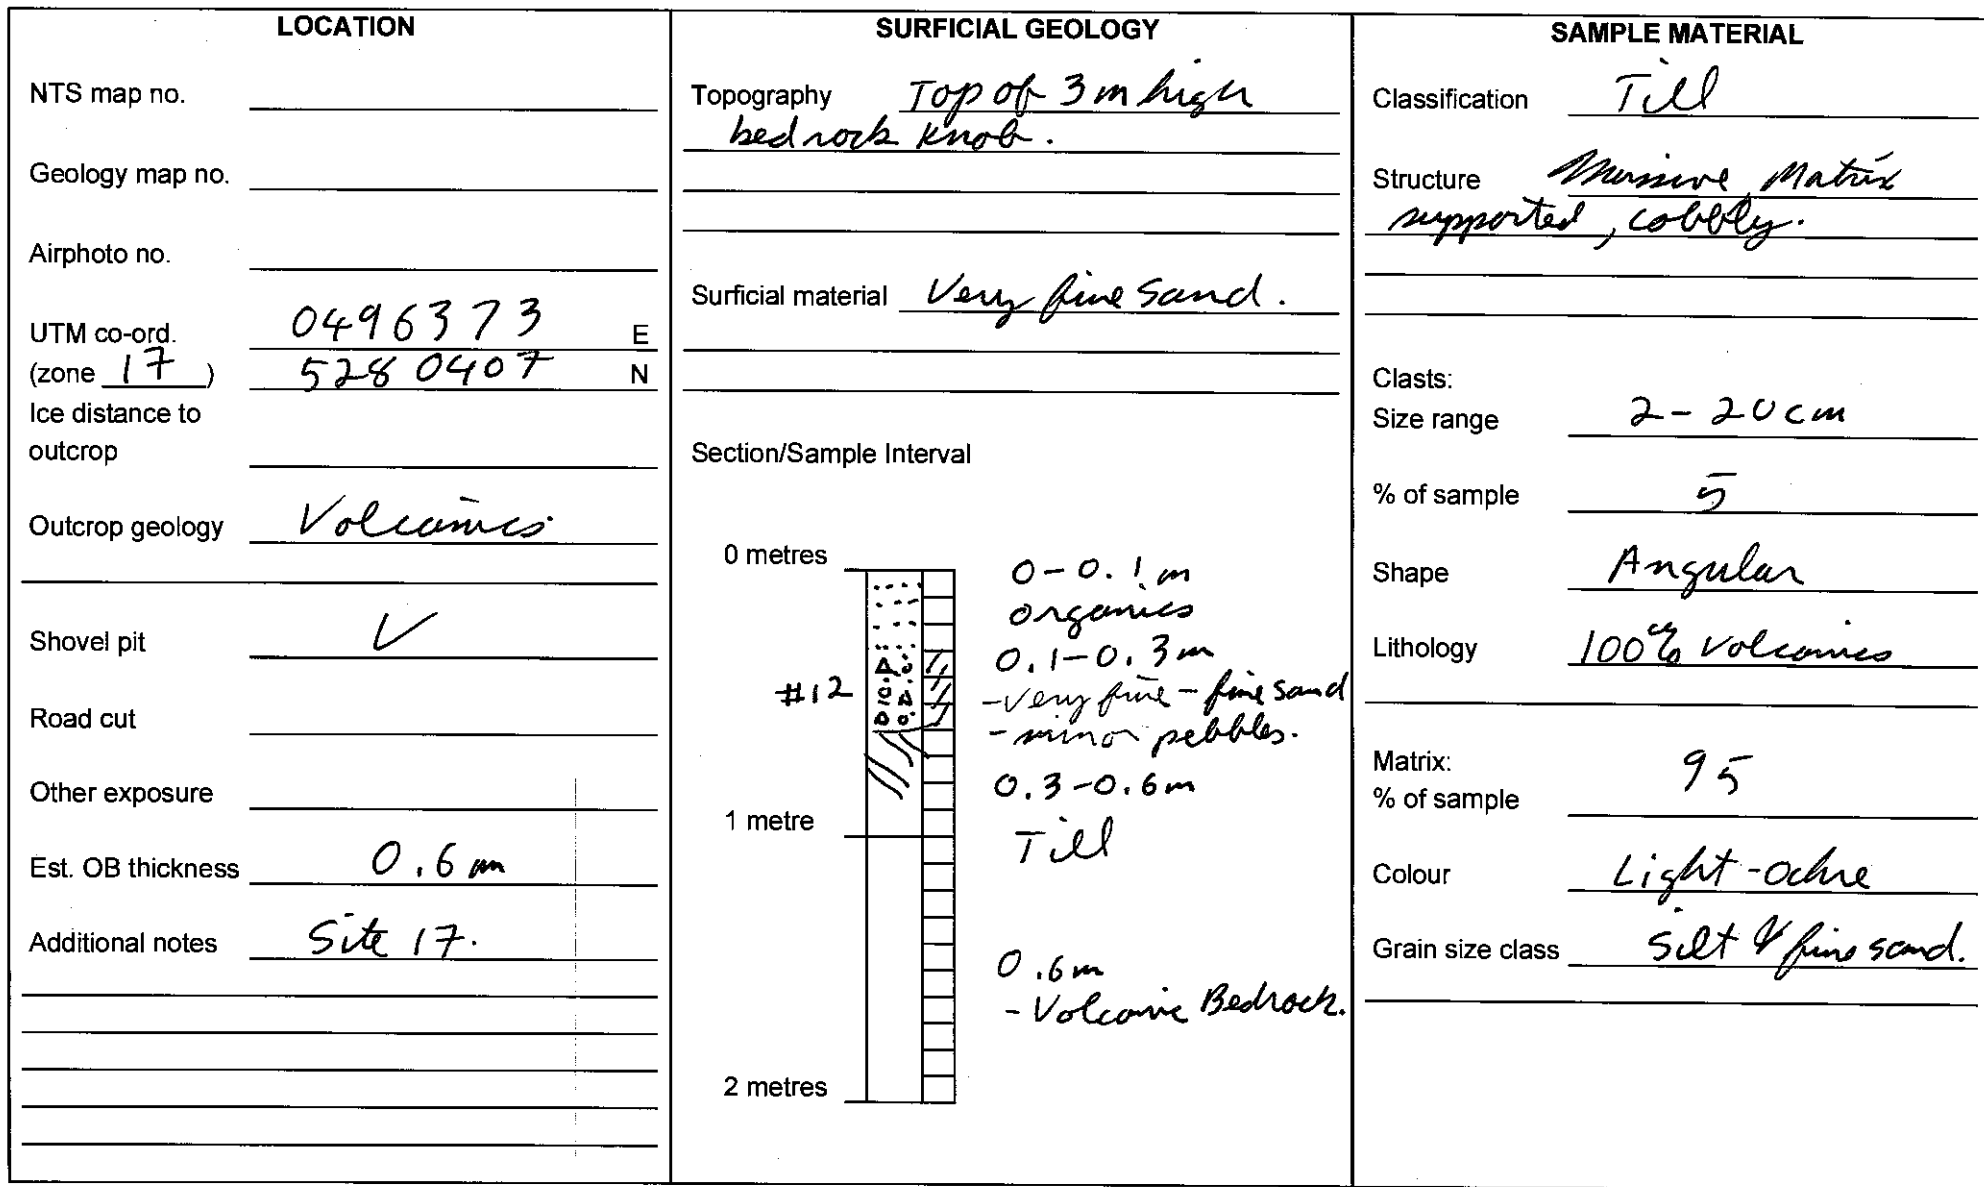 LOCATION
NTS map no.
Geology map no.
Airphoto no.
UTM co-ord. 0496373 E
(zone 17) 5280407 N
Ice distance to
outcrop
Outcrop geology Volcanics
Shovel pit ✓
Road cut
Other exposure
Est. OB thickness 0.6 m
Additional notes Site 17.
SURFICIAL GEOLOGY
Topography Top of 3 m high
bedrock knob.
Surficial material Very fine sand.
Section/Sample Interval
0 metres
#12
1 metre
2 metres
0-0.1 m
organics
0.1-0.3 m
-very fine - fine sand
- minor pebbles.
0.3-0.6 m
Till
0.6 m
- Volcanic Bedrock.
SAMPLE MATERIAL
Classification Till
Structure Massive, Matrix
supported, cobbly.
Clasts:
Size range 2-20 cm
% of sample 5
Shape Angular
Lithology 100% volcanics
Matrix:
% of sample 95
Colour Light-ochre
Grain size class Silt & fine sand.